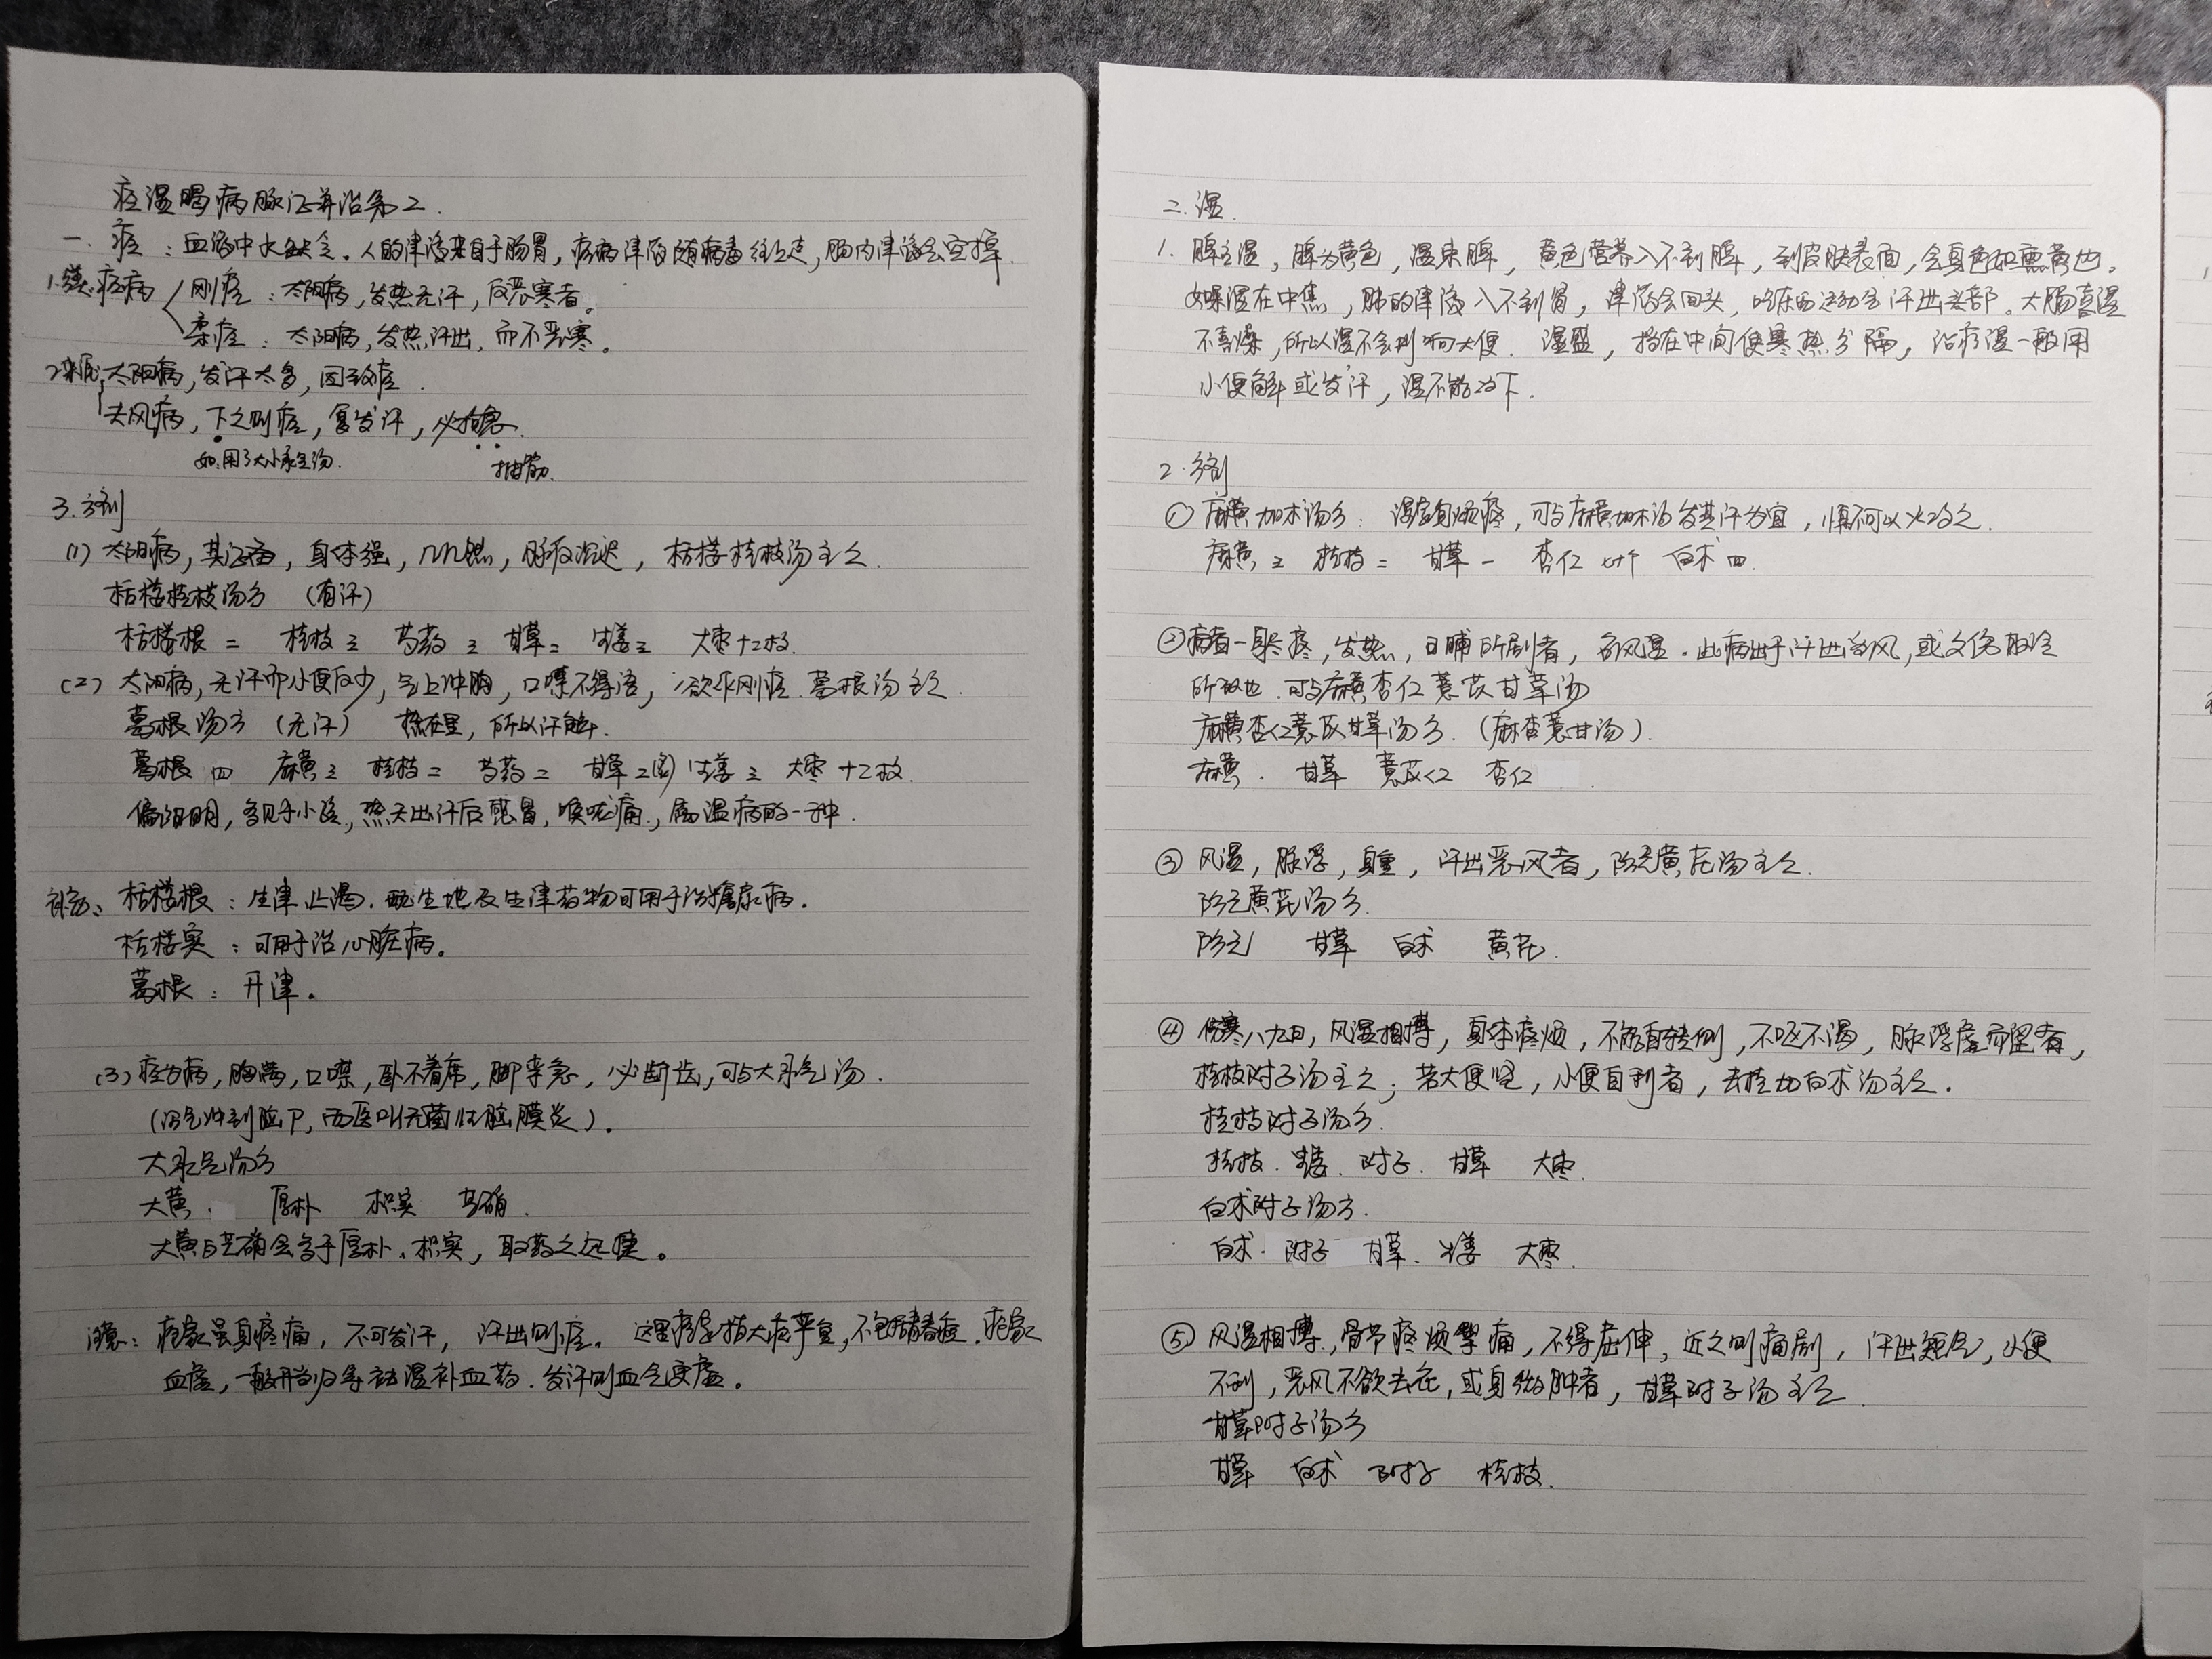 痉湿暍病脉证并治第二.
一. 痉：血液中水缺乏。人的津液来自于肠胃，痉病津液随病毒往上走，肠内津液会空掉.
1.分类：痉病 刚痉：太阳病，发热无汗，反恶寒者。
柔痉：太阳病，发热汗出，而不恶寒。
2.来源 太阳病，发汗太多，因致痉.
夫风病，下之则痉，复发汗，必拘急.
如：用了大小承气汤. 抽筋.
3.方剂
(1) 太阳病，其证备，身体强，几几然，脉反沉迟，栝楼桂枝汤主之.
栝楼桂枝汤方 (有汗)
栝楼根二 桂枝三 芍药三 甘草二 生姜三 大枣十二枚.
(2) 太阳病，无汗而小便反少，气上冲胸，口噤不得语，欲作刚痉.葛根汤主之.
葛根汤方 (无汗) 热在里，所以汗解.
葛根四 麻黄三 桂枝二 芍药二 甘草二(炙) 生姜三 大枣十二枚.
偏阳明，多见于小孩，热天出汗后感冒，喉咙痛，属温病的一种.
栝楼根：生津止渴.配生地及生津药物可用于治糖尿病.
栝楼实：可用于治心脏病。
葛根：升津。
(3) 痉为病，胸满，口噤，卧不着席，脚挛急，必断齿，可与大承气汤.
(沼气冲到脑户，西医叫无菌性脑膜炎).
大承气汤方
大黄. 厚朴 枳实 芒硝.
大黄与芒硝会多于厚朴、枳实，取药之迅速。
注意：疮家虽身疼痛，不可发汗，汗出则痉。这里疮是指大疮严重，不包括青春痘.疮家
血虚，一般开当归等祛湿补血药.发汗则血会更虚。
二.湿.
1. 脾主湿，脾为黄色，湿束脾，黄色营养入不到脾，到皮肤表面，会身色如熏黄也。
如果湿在中焦，肺的津液入不到胃，津液会回头，吃东西运动会汗出头部.大肠喜湿
不喜燥，所以湿不会影响大便.湿盛，挡在中间使寒热分隔，治疗湿一般用
小便解或发汗，湿不能攻下.
2.方剂
① 麻黄加术汤方：湿家身烦疼，可与麻黄加术汤发其汗为宜，慎不可以火攻之.
麻黄三 桂枝二 甘草一 杏仁七十个 白术四.
②病者一身尽疼，发热，日晡所剧者，名风湿.此病出于汗出当风，或久伤取冷
所致也.可与麻黄杏仁薏苡甘草汤
麻黄杏仁薏苡甘草汤方.(麻杏薏甘汤).
麻黄. 甘草 薏苡仁 杏仁
③ 风湿，脉浮，身重，汗出恶风者，防己黄芪汤主之.
防己黄芪汤方.
防己 甘草 白术 黄芪.
④ 伤寒八九日，风湿相搏，身体疼烦，不能自转侧，不呕不渴，脉浮虚而涩者，
桂枝附子汤主之；若大便坚，小便自利者，去桂加白术汤主之.
桂枝附子汤方.
桂枝. 生姜. 附子. 甘草 大枣.
白术附子汤方.
白术. 附子 甘草. 生姜 大枣.
⑤ 风湿相搏，骨节疼烦掣痛，不得屈伸，近之则痛剧，汗出短气，小便
不利，恶风不欲去衣，或身微肿者，甘草附子汤主之.
甘草附子汤方
甘草 白术 附子 桂枝.